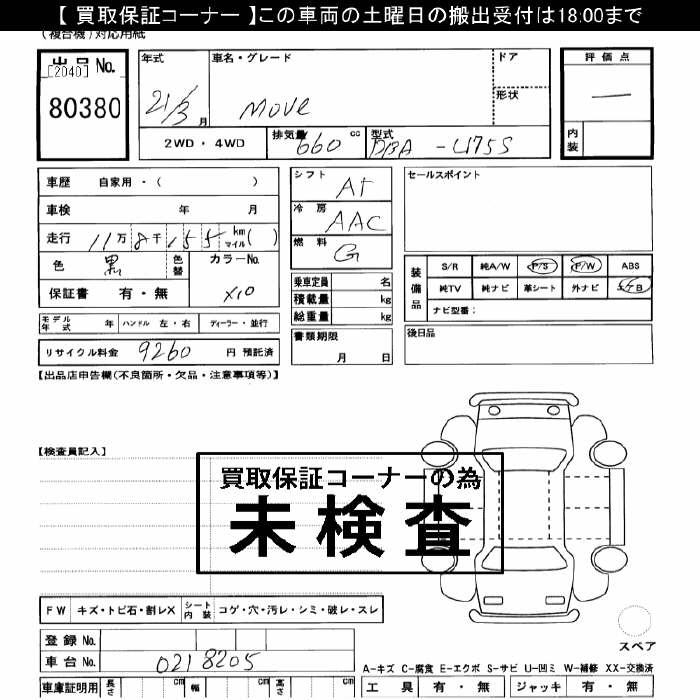 【 買取保証コーナー 】この車両の土曜日の搬出受付は18:00まで
(複合機)対応用紙
出品 No.
[2040]
80380
年式
21/3 月
車名・グレード
Move
ドア
形状
評価点
—
内装
2WD・4WD
排気量 660 cc
型式 DBA-L175S
車歴 自家用・( )
車検 年 月
走行 11万8千155 km マイル( )
色 黒 色替
カラーNo. X10
保証書 有・無
シフト AT
冷房 AAC
燃料 G
乗車定員 名
積載量 kg
総重量 kg
書類期限
月 日
セールスポイント
装備品
S/R 純A/W P/S P/W ABS
純TV 純ナビ 革シート 外ナビ エアB
ナビ型番:
後日品
モデル年式 年 ハンドル 左・右 ディーラー・並行
リサイクル料金 9260 円 預託済
【出品店申告欄(不良箇所・欠品・注意事項等)】
【検査員記入】
買取保証コーナーの為
未検査
FW キズ・トビ石・割レX シート内装 コゲ・穴・汚レ・シミ・破レ・スレ
登録 No.
車台 No. 0218205
車庫証明用 長さ cm 幅 cm 高さ cm
スペア
A-キズ C-腐食 E-エクボ S-サビ U-凹ミ W-補修 XX-交換済
工具 有・無 ジャッキ 有・無